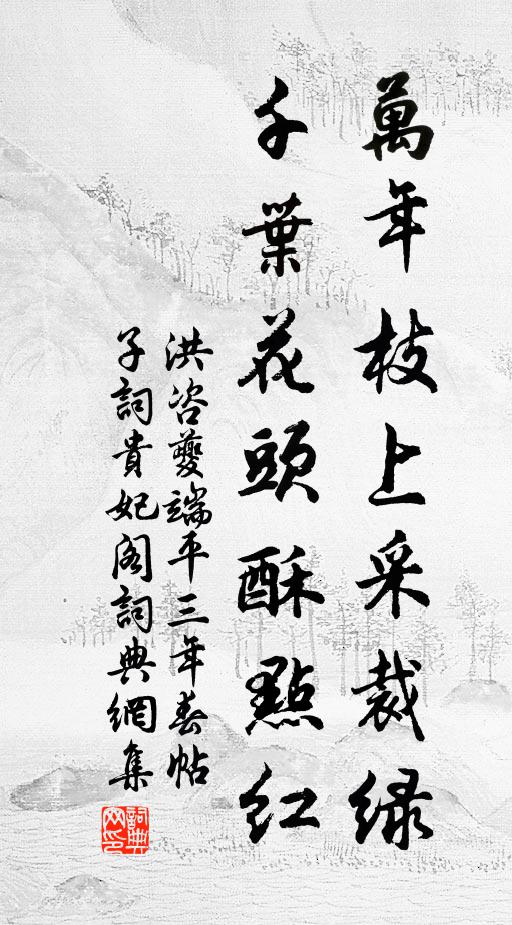 萬年枝上采裁緑
千葉花頭酥點紅
洪咨夔端平三年春帖
子詞貴妃閣詞典網集
詞典
网印